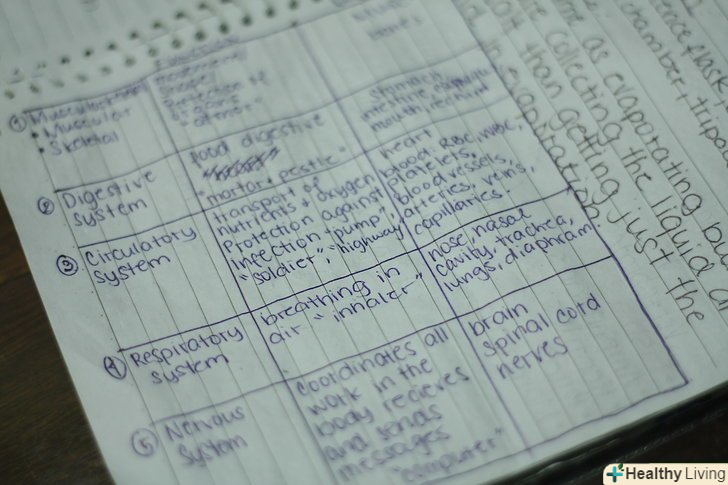 ① Musculoskeletal
• Muscular
• Skeletal
movement
shape
Protection of
organs
"armor"
bones
② Digestive
system
food digestive
"mortar & pestle"
stomach
intestine, esophagus
mouth, rectum
③ Circulatory
system
transport of
nutrients & oxygen
Protection against
infection "pump",
"soldier", "highway"
heart
blood, RBC, WBC,
platelets,
blood vessels,
arteries, veins,
capillaries.
④ Respiratory
system
breathing in
air "inhaler"
nose, nasal
cavity, trachea,
lungs, diaphram.
⑤ Nervous
system
Coordinates all
work in the
body recieves
and sends
messages
"computer"
brain
spinal cord
nerves
chamber, tripod
as evaporating but
collecting the liquid
than getting just the
evaporation
Healthy Living